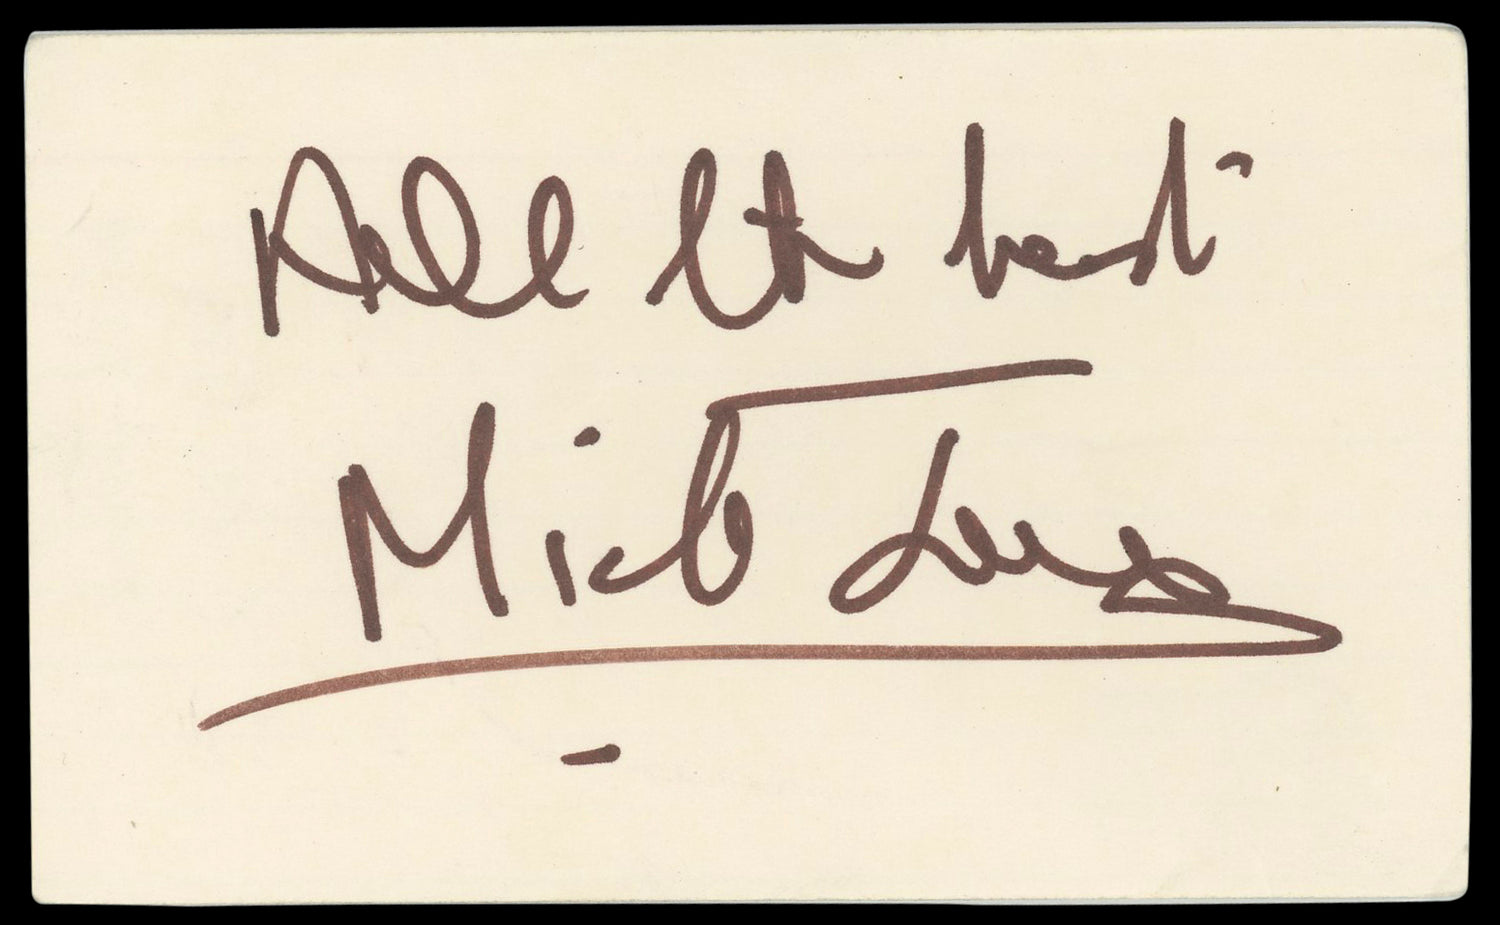 All the best
Mick